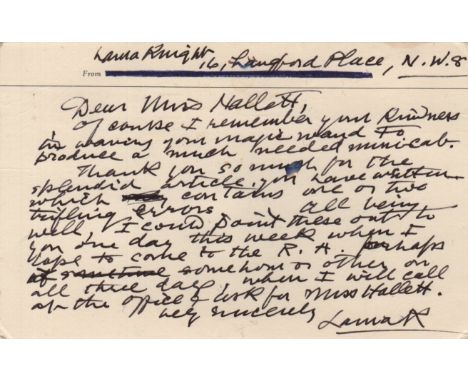 Laura Knight, 16, Langford Place, N.W.8
From
Dear Miss Hallett,
Of course I remember your kindness
in waving your magic wand to
produce a much needed minicab.
Thank you so much for the
splendid article you have written
which contains one or two
trifling errors. All being
well, I could point these out to
you one day this week when I
hope to come to the R.A. perhaps
somehow or other on
all three days, when I will call
at the office & ask for Miss Hallett.
very sincerely
Laura K